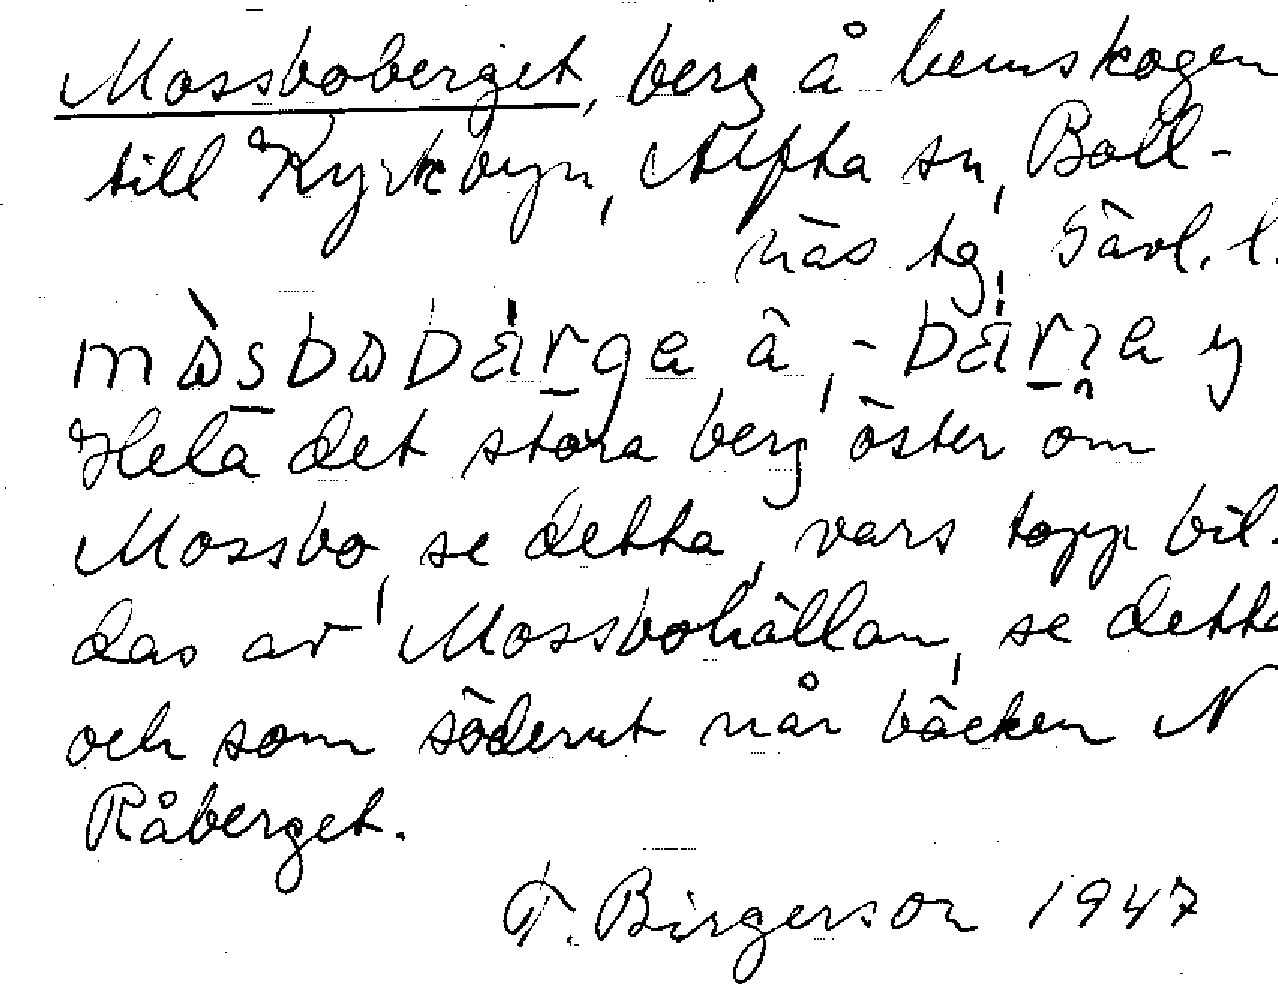 Mossboberget, berg å hemskogen
till Kyrkbyn, Alfta sn, Boll-
näs tg, Gävl. l.
Hela det stora berg öster om
Mossbo, se detta, vars topp bil-
das av Mossbohällan, se detta
och som söderut når bäcken N
Råberget.
T. Birgerson 1947